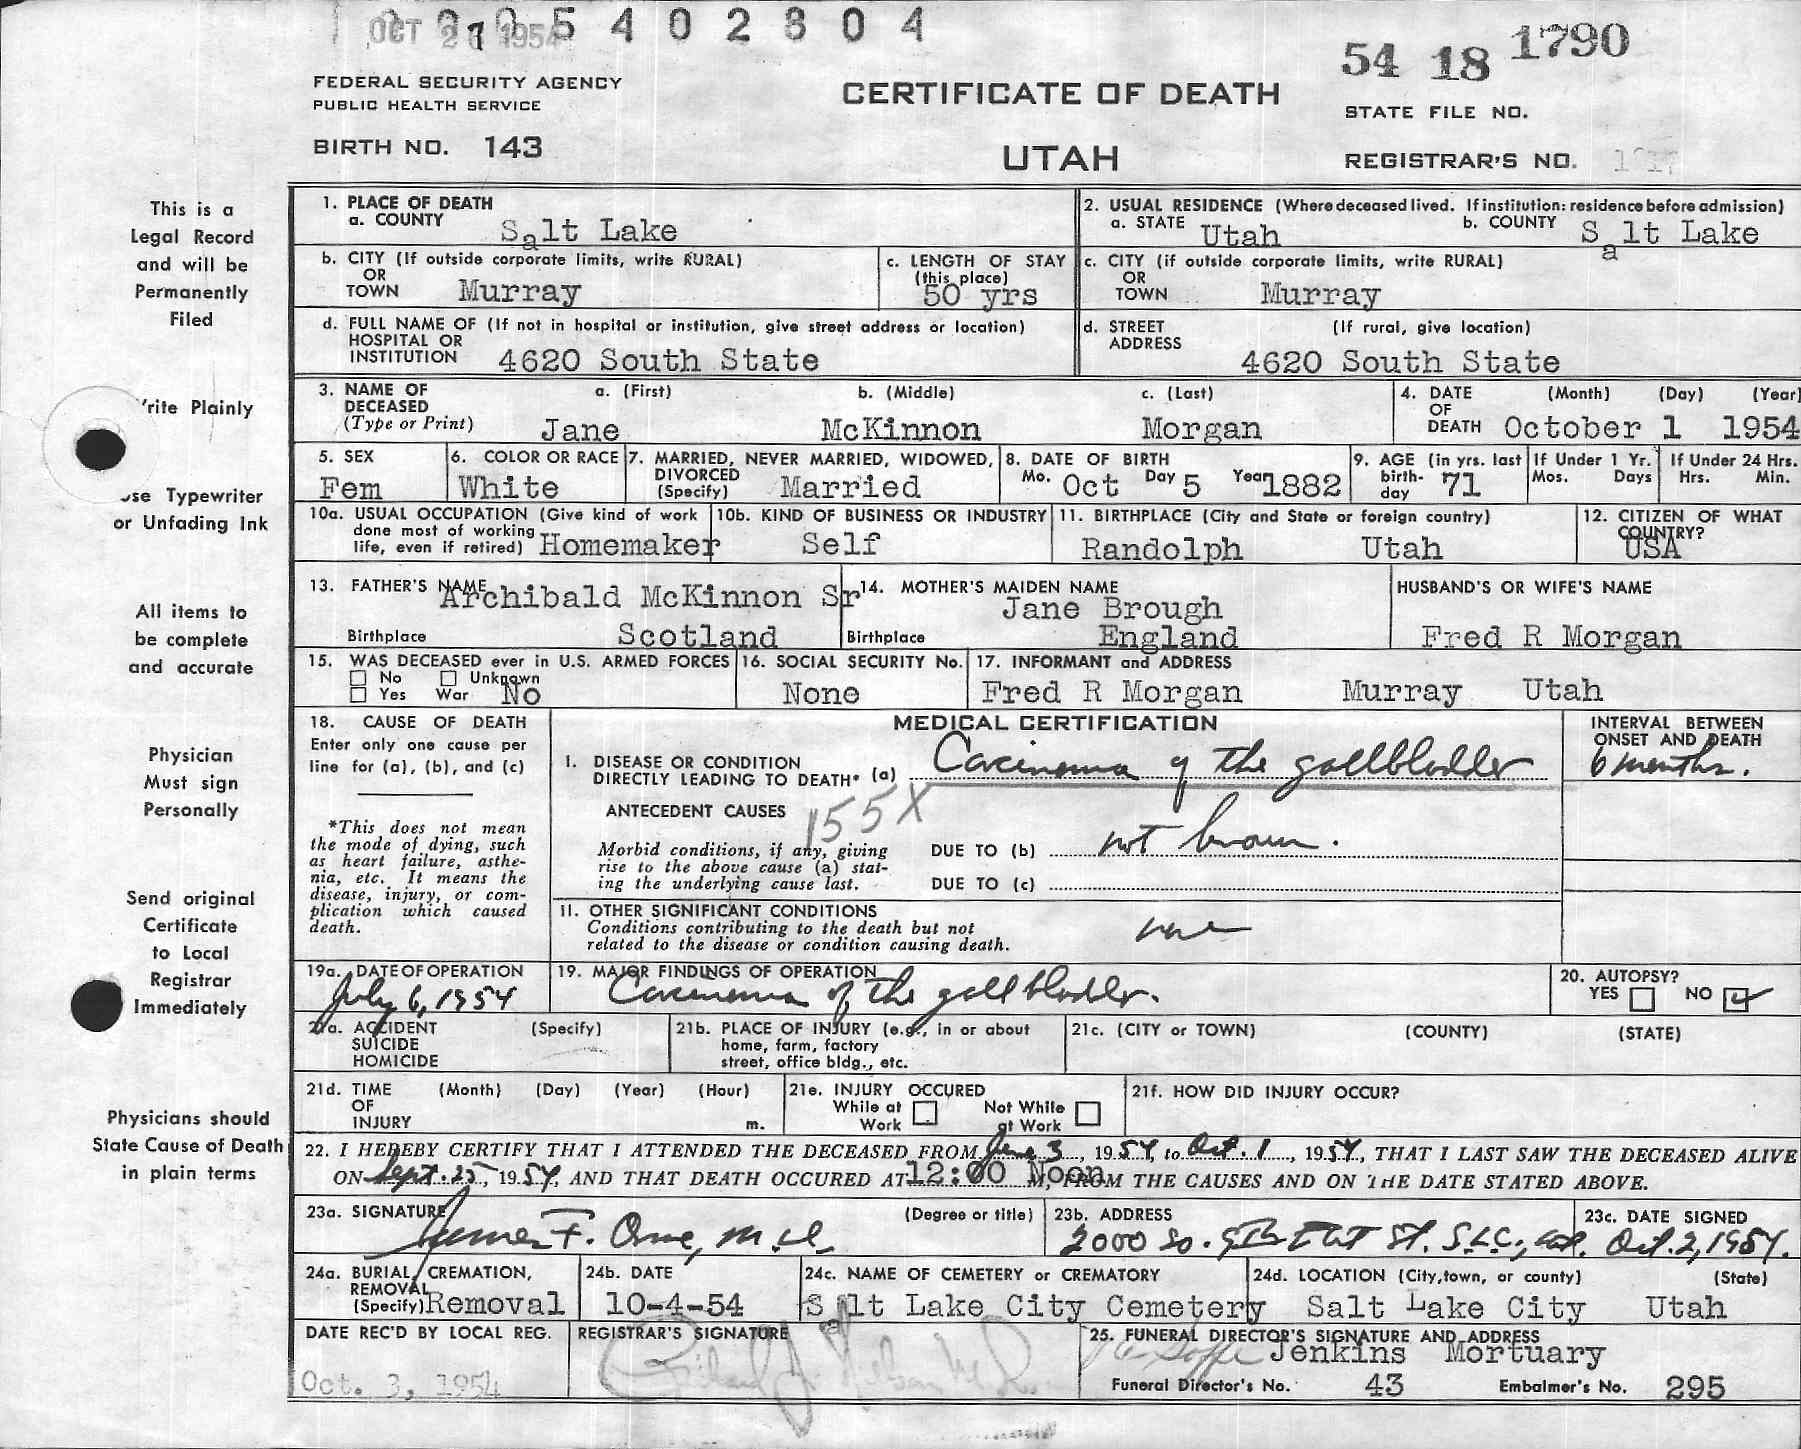 OCT 2 1954 5402804
54 18 1790
FEDERAL SECURITY AGENCY
PUBLIC HEALTH SERVICE
CERTIFICATE OF DEATH
STATE FILE NO.
BIRTH NO. 143
UTAH
REGISTRAR'S NO.
This is a
Legal Record
and will be
Permanently
Filed
'rite Plainly
se Typewriter
or Unfading Ink
All items to
be complete
and accurate
Physician
Must sign
Personally
Send original
Certificate
to Local
Registrar
Immediately
Physicians should
State Cause of Death
in plain terms
1. PLACE OF DEATH
a. COUNTY Salt Lake
2. USUAL RESIDENCE (Where deceased lived. If institution: residence before admission)
a. STATE Utah b. COUNTY Salt Lake
b. CITY (If outside corporate limits, write RURAL)
OR
TOWN Murray
c. LENGTH OF STAY
(this place)
50 yrs
c. CITY (if outside corporate limits, write RURAL)
OR
TOWN Murray
d. FULL NAME OF (If not in hospital or institution, give street address or location)
HOSPITAL OR
INSTITUTION 4620 South State
d. STREET (If rural, give location)
ADDRESS
4620 South State
3. NAME OF a. (First) b. (Middle) c. (Last)
DECEASED
(Type or Print) Jane McKinnon Morgan
4. DATE (Month) (Day) (Year)
OF
DEATH October 1 1954
5. SEX
Fem
6. COLOR OR RACE
White
7. MARRIED, NEVER MARRIED, WIDOWED,
DIVORCED
(Specify) Married
8. DATE OF BIRTH
Mo. Oct Day 5 Year 1882
9. AGE (in yrs. last
birth-
day 71
If Under 1 Yr.
Mos. Days
If Under 24 Hrs.
Hrs. Min.
10a. USUAL OCCUPATION (Give kind of work
done most of working
life, even if retired) Homemaker
10b. KIND OF BUSINESS OR INDUSTRY
Self
11. BIRTHPLACE (City and State or foreign country)
Randolph Utah
12. CITIZEN OF WHAT
COUNTRY?
USA
13. FATHER'S NAME Archibald McKinnon Sr
Birthplace Scotland
14. MOTHER'S MAIDEN NAME
Jane Brough
Birthplace England
HUSBAND'S OR WIFE'S NAME
Fred R Morgan
15. WAS DECEASED ever in U.S. ARMED FORCES
No Unknown
Yes War No
16. SOCIAL SECURITY No.
None
17. INFORMANT and ADDRESS
Fred R Morgan Murray Utah
18. CAUSE OF DEATH
Enter only one cause per
line for (a), (b), and (c)
*This does not mean
the mode of dying, such
as heart failure, asthe-
nia, etc. It means the
disease, injury, or com-
plication which caused
death.
MEDICAL CERTIFICATION
I. DISEASE OR CONDITION
DIRECTLY LEADING TO DEATH* (a) Carcinoma of the gallbladder
INTERVAL BETWEEN
ONSET AND DEATH
6 months.
ANTECEDENT CAUSES 155X
Morbid conditions, if any, giving
rise to the above cause (a) stat-
ing the underlying cause last.
DUE TO (b) not known.
DUE TO (c)
II. OTHER SIGNIFICANT CONDITIONS
Conditions contributing to the death but not
related to the disease or condition causing death.
none
19a. DATE OF OPERATION
July 6, 1954
19. MAJOR FINDINGS OF OPERATION
Carcinoma of the gallbladder.
20. AUTOPSY?
YES NO
21a. ACCIDENT (Specify)
SUICIDE
HOMICIDE
21b. PLACE OF INJURY (e.g., in or about
home, farm, factory
street, office bldg., etc.
21c. (CITY or TOWN) (COUNTY) (STATE)
21d. TIME (Month) (Day) (Year) (Hour)
OF
INJURY m.
21e. INJURY OCCURED
While at Not While
Work at Work
21f. HOW DID INJURY OCCUR?
22. I HEREBY CERTIFY THAT I ATTENDED THE DECEASED FROM June 3, 1954, to Oct. 1, 1954, THAT I LAST SAW THE DECEASED ALIVE
ON Sept. 25, 1954, AND THAT DEATH OCCURED AT 12:00 Noon M, FROM THE CAUSES AND ON THE DATE STATED ABOVE.
23a. SIGNATURE (Degree or title)
James F. Orme, M.D.
23b. ADDRESS
2000 So. 9th East St. S.L.C.,
23c. DATE SIGNED
Oct. 2, 1954.
24a. BURIAL, CREMATION,
REMOVAL
(Specify) Removal
24b. DATE
10-4-54
24c. NAME OF CEMETERY or CREMATORY
Salt Lake City Cemetery
24d. LOCATION (City, town, or county) (State)
Salt Lake City Utah
DATE REC'D BY LOCAL REG.
Oct. 3, 1954
REGISTRAR'S SIGNATURE
25. FUNERAL DIRECTOR'S SIGNATURE AND ADDRESS
Jenkins Mortuary
Funeral Director's No. 43 Embalmer's No. 295